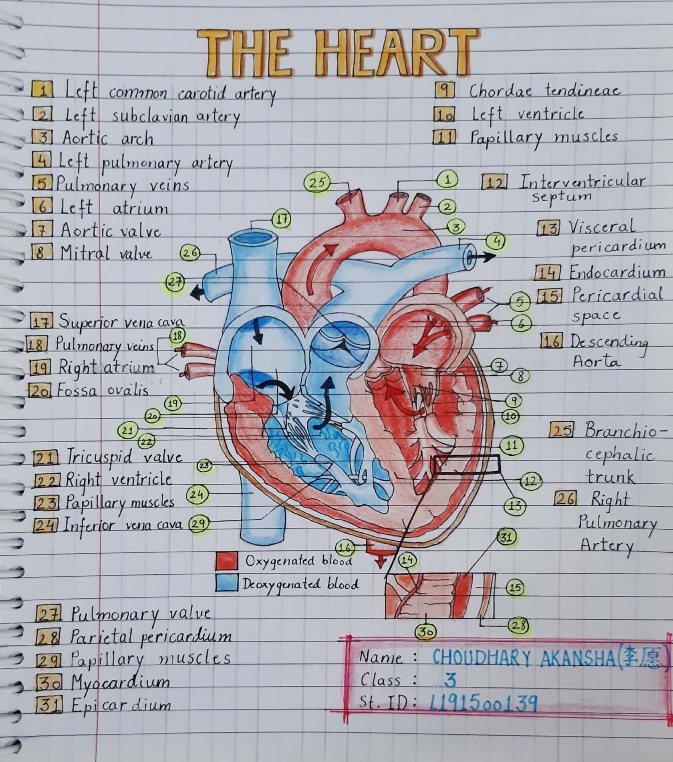 THE HEART
1 Left common carotid artery
2 Left subclavian artery
3 Aortic arch
4 Left pulmonary artery
5 Pulmonary veins
6 Left atrium
7 Aortic valve
8 Mitral valve
9 Chordae tendineae
10 Left ventricle
11 Papillary muscles
12 Interventricular
septum
13 Visceral
pericardium
14 Endocardium
15 Pericardial
space
16 Descending
Aorta
17 Superior vena cava
18 Pulmonary veins
19 Right atrium
20 Fossa ovalis
21 Tricuspid valve
22 Right ventricle
23 Papillary muscles
24 Inferior vena cava
25 Branchio-
cephalic
trunk
26 Right
Pulmonary
Artery
25
1
2
3
4
17
26
27
5
6
18
7
8
9
10
19
20
21
22
11
23
12
24
13
29
31
16
14
15
28
30
Oxygenated blood
Deoxygenated blood
27 Pulmonary valve
28 Parietal pericardium
29 Papillary muscles
30 Myocardium
31 Epicardium
Name : CHOUDHARY AKANSHA (李愿)
Class : 3
St. ID: L191500139